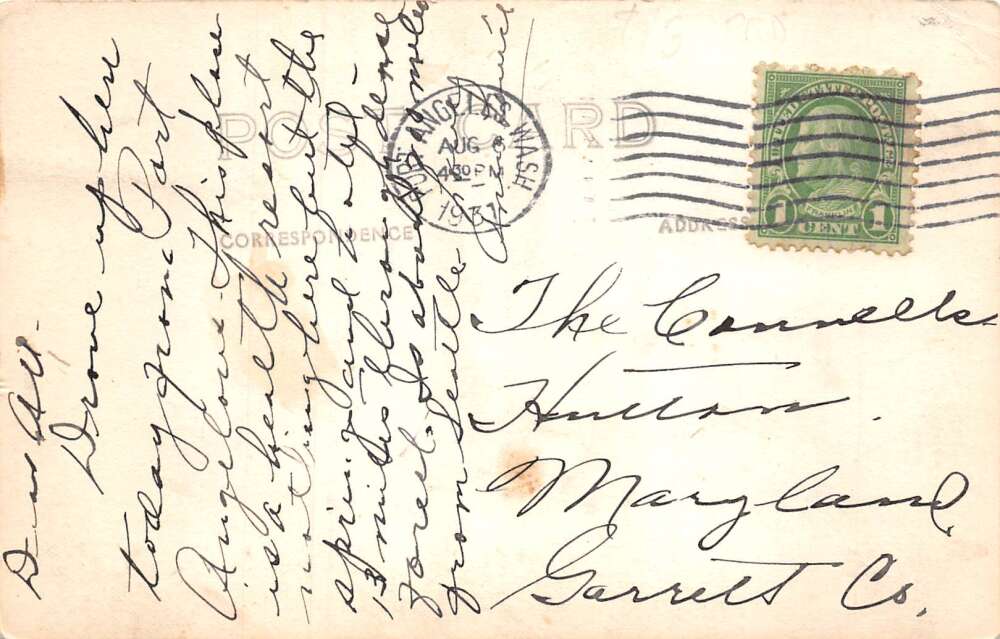 POST CARD
CORRESPONDENCE
ADDRESS
PORT ANGELES, WASH
AUG 8
430 PM
1931
UNITED STATES POSTAGE
1 CENT 1
Dear All-
Drove up here
today from Port
Angelous. This place
is a health resort
nothing here but the
spring and hotel
miles from
forest. Is about miles
from Seattle
The Connells
Hutton.
Maryland,
Garrett Co.